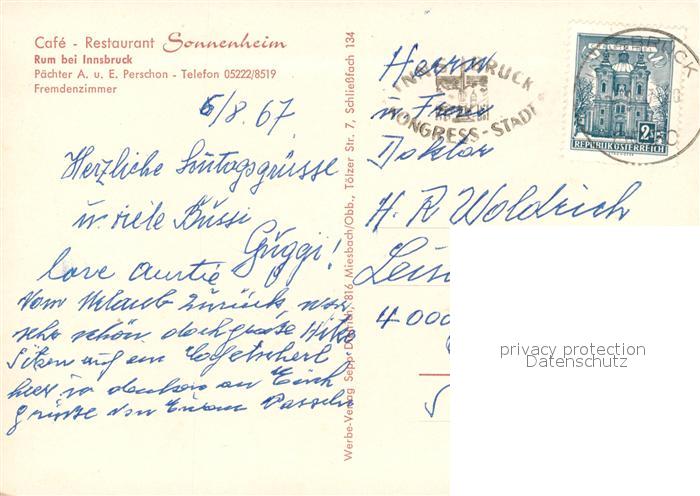 Café - Restaurant Sonnenheim
Rum bei Innsbruck
Pächter A. u. E. Perschon - Telefon 05222/8519
Fremdenzimmer
6/8.67
Herzliche Sontagsgrüsse
u. viele Bussi
Guggi!
love Auntie
Vom Urlaub zurück, war
sehr schön, doch grosse Hitze
Sitzen auf ein
hier u. denken an Euch
grüsse von
Werbe-Verlag Sepp Dietrich, 816 Miesbach/Obb., Tölzer Str. 7, Schließfach 134
INNSBRUCK
KONGRESS-STADT
2S
REPUBLIK ÖSTERREICH
Herrn
u. Frau
Doktor
H. R. Woldrich
4000
privacy protection
Datenschutz